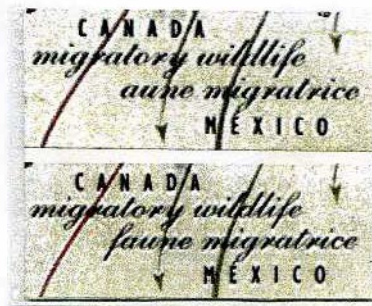 CANADA
migratory wildlife
aune migratrice
MÉXICO
CANADA
migratory wildlife
faune migratrice
MÉXICO